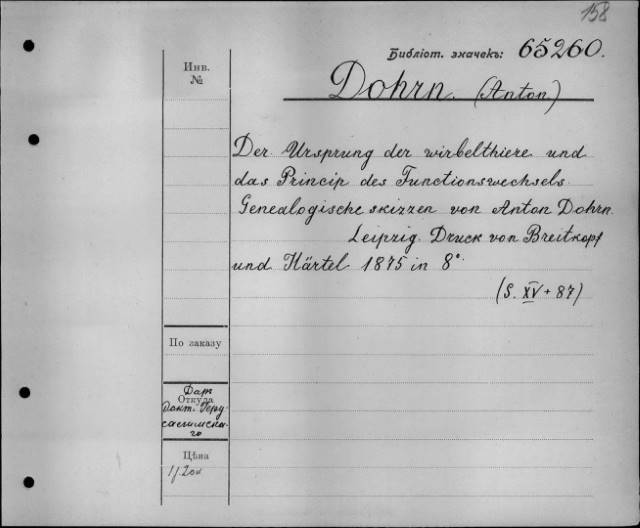 158
Библіот. значекъ: 65260.
Инв.
№
Dohrn. (Anton)
Der Ursprung der wirbelthiere und
das Princip des Functionswechsels
Genealogische skizzen von Anton Dohrn.
Leipzig. Druck von Breitkopf
und Härtel 1875 in 8°
(S. XV + 87)
По заказу
Даръ
Откуда
Докт. Геру-
салимска-
го
Цѣна